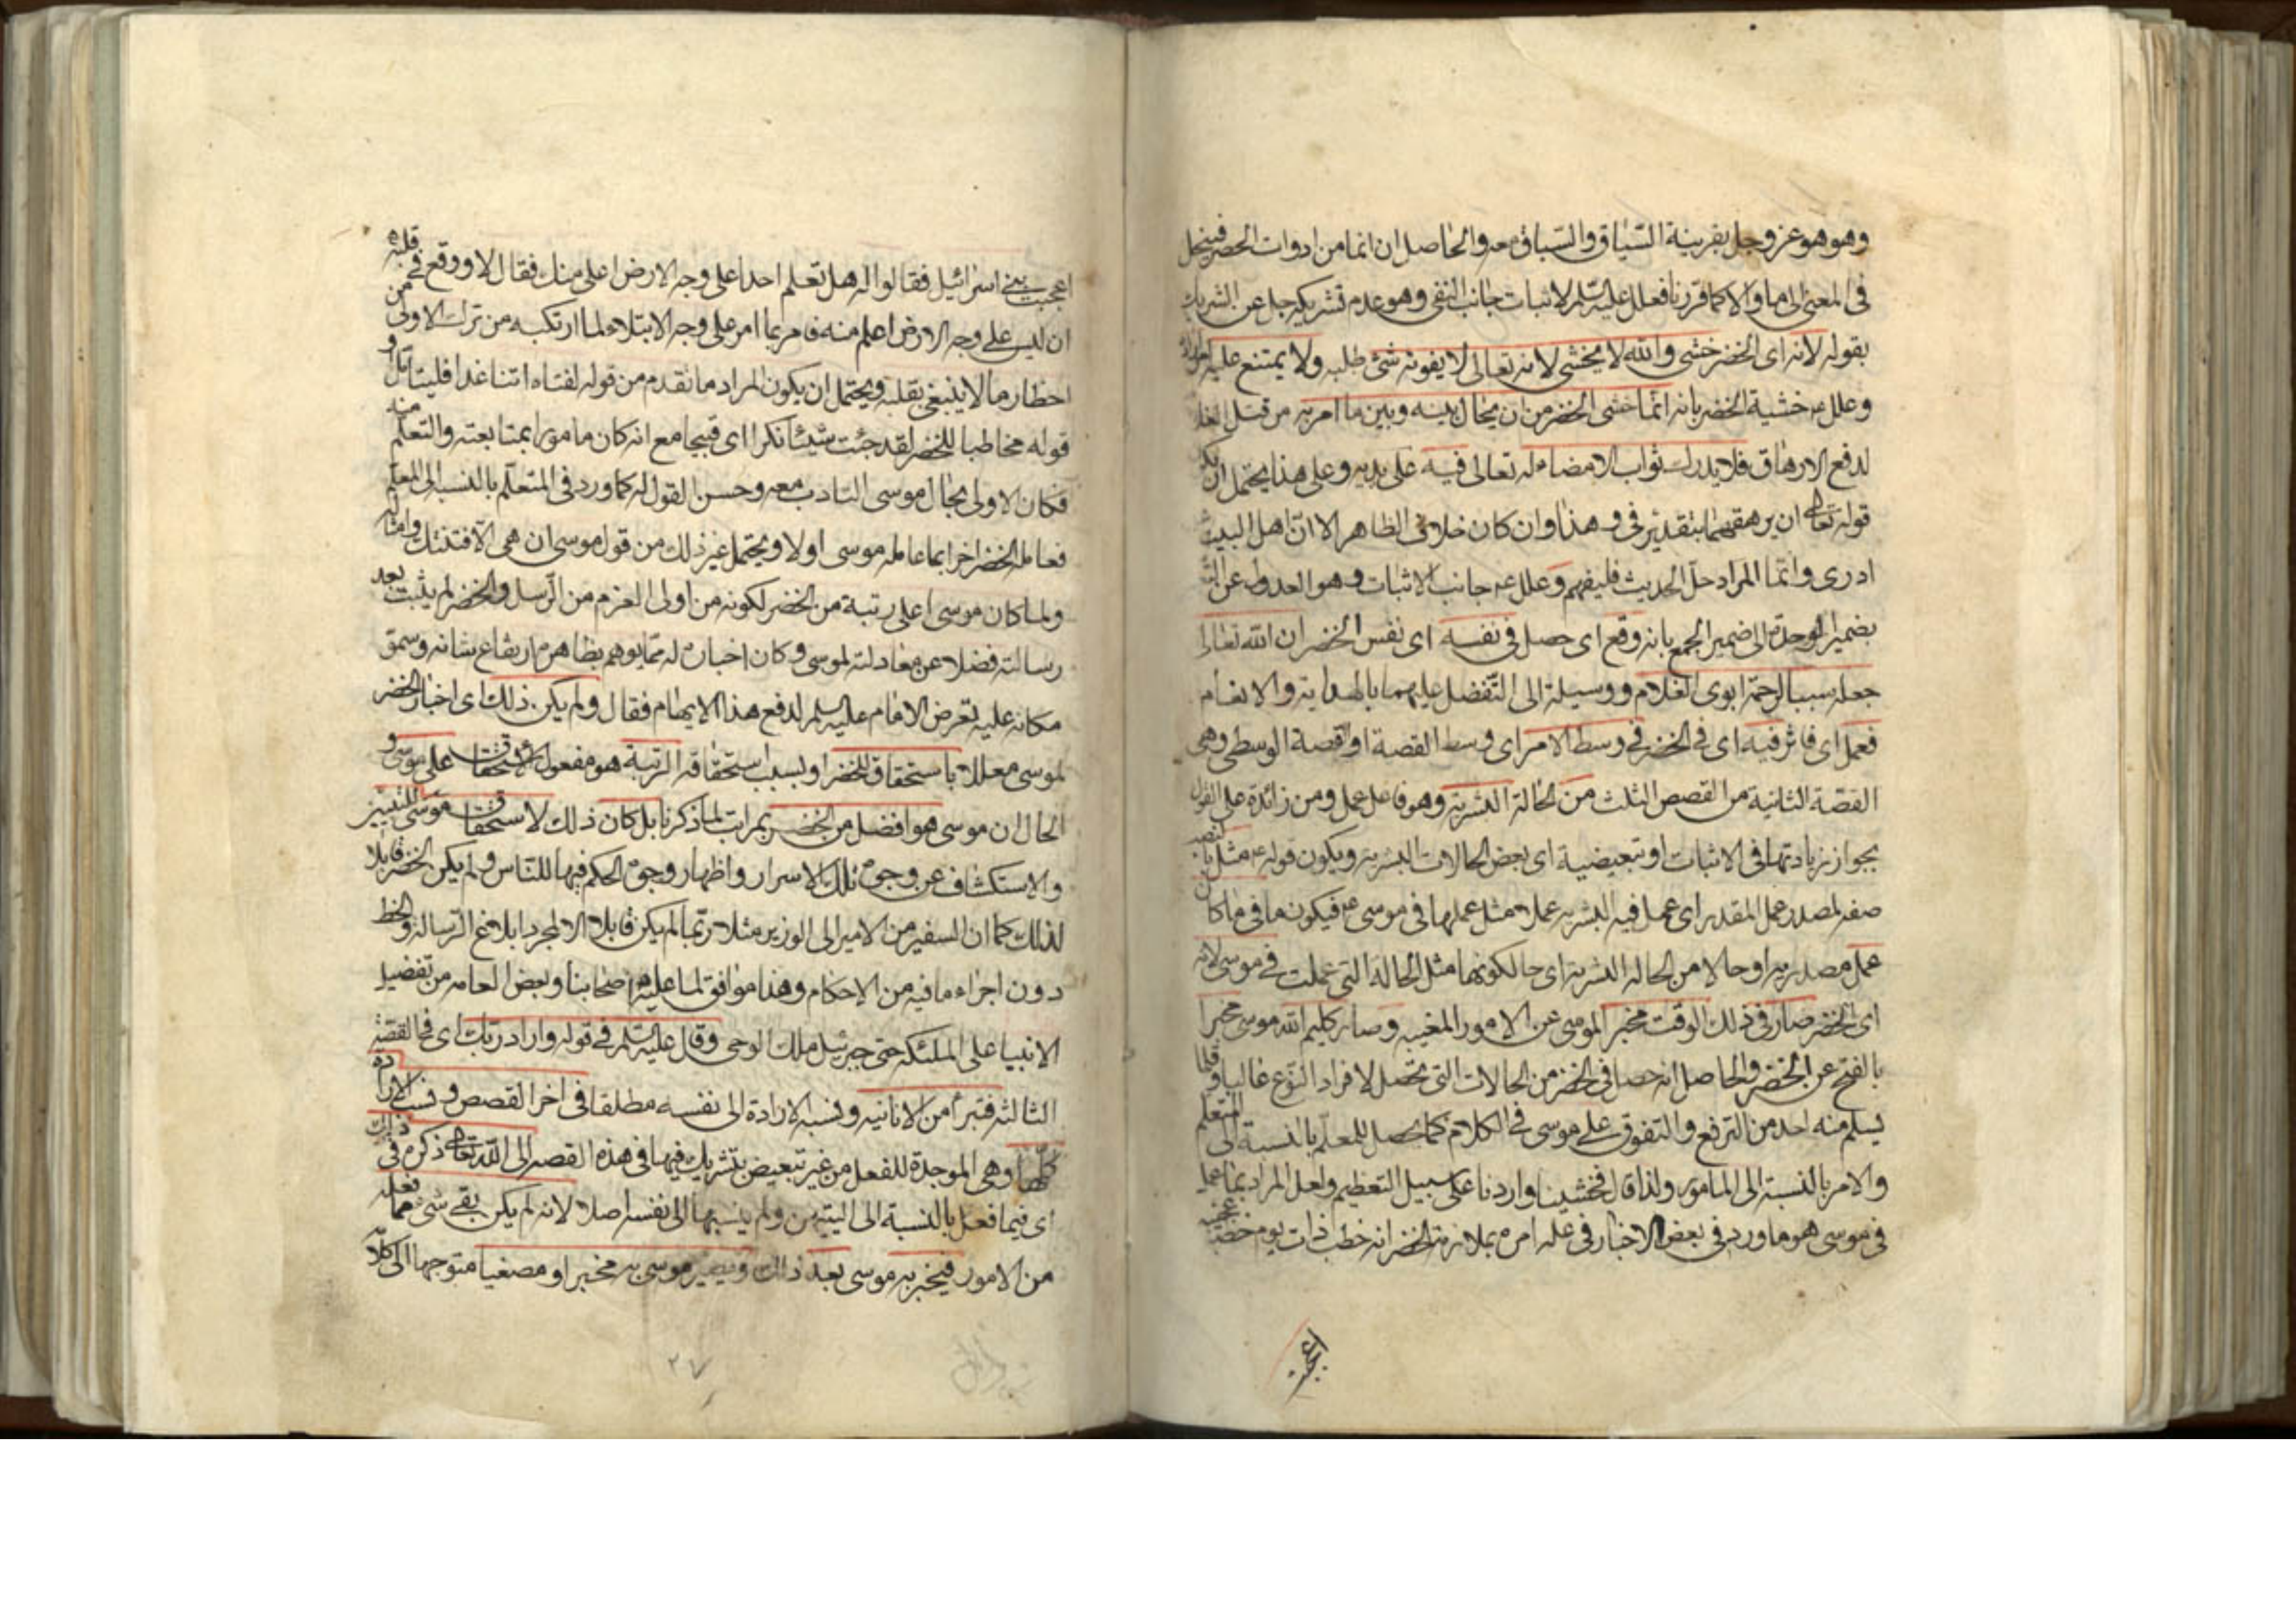 وهو هو عز وجل بقرينة السّياق والسّباق معه والحاصل ان انما من ادوات الحصر فينحل
فى المعنى الى ما والا كما قررنا فعلل عليه السّلم لاثبات جانب النفى وهو عدم تشريكه جل عن الشريك
بقوله لانه اى الخضر خشى والله لا يخشى لانه تعالى لا يفوته شئ طلبه ولا يمتنع عليه
وعلل ع خشية الخضر بانه انّما خشى الخضر من ان يحال بينه وبين ما امر به من قتل الغلام
لدفع الارهاق فلا يدرك ثواب الامضاء له تعالى فيه على يديه وعلى هذا يحتمل ان يكون
قوله تعالى ان يرهقهما بتقدير فى وهذا وان كان خلاف الظاهر الا انّ اهل البيت
ادرى وانّما المراد حلّ الحديث فليفهم وعلل ع جانب الاثبات وهو العدول عن
بضمير الوحدة الى ضمير الجمع بانه وقع اى حصل فى نفسه اى نفس الخضر ان الله تعالى
جعله سببا لرحمة ابوى الغلام ووسيلة الى التّفضل عليهما بالهداية والانعام
فعمل اى فاثر فيه اى فى الخضر فى وسط الامر اى وسط القصة او قصة الوسطى وهى
القصّة الثانية من القصص الثلث من الحالة البشرية وهو فاعل عمل ومن زائدة على القول
بجواز زيادتها فى الاثبات او تبعيضية اى بعض الحالات البشرية ويكون قوله ع مثل بالنصب
صفه لمصدر عمل المقدر اى عمل فيه البشريه عملا مثل عملها فى موسى ع فيكون ما فى ما كان
عمل مصدريه او حالا من الحاله البشرية اى حالكونها مثل الحالة التى عملت فى موسى لانه
اى الخضر صار فى ذلك الوقت مخبرا لموسى عن الامور المغيبه وصار كليم الله موسى مخبرا
بالفتح عن الخضر والحاصل انه حصل فى الخضر من الحالات التى تحصل لافراد النّوع غالبا وقلما
يسلم منه احد من الترفع والتفوق على موسى فى الكلام كما يحصل للمعلّم بالنسبة الى المتعلم
والامر بالنسبة الى المامور ولذا قال فخشينا واردنا على سبيل التعظيم ولعل المراد بما عمل
فى موسى هو ما ورد فى بعض الاخبار فى علة امره بملازمة الخضر انه خطب ذات يوم خطبة
اعجبت
اعجبت بنى اسرائيل فقالوا له هل تعلم احدا على وجه الارض اعلم منك فقال لا ووقع فى قلبه
ان ليس على وجه الارض اعلم منه فامر بما امر على وجه الابتلاء لما ارتكبه من ترك الاولى من
احظار ما لا ينبغى بقلبه ويحتمل ان يكون المراد ما تقدم من قوله لفتاه اتنا غدا فليتأمل و
قوله مخاطبا للخضر لقد جئت شيئا نكرا اى قبيحا مع انه كان مامورا بمتابعته والتعلّم منه
فكان الاولى بحال موسى التادب معه وحسن القول له كما ورد فى المتعلّم بالنسبه الى المعلّم
فعامله الخضر اخرا بما عامله موسى اولا ويحتمل غير ذلك من قول موسى ان هى الّا فتنتك وامثاله
ولما كان موسى اعلى رتبة من الخضر لكونه من اولى العزم من الرّسل والخضر لم يثبت بعد
رسالته فضلا عن معادلته لموسى وكان اخباره له ممّا يوهم بظاهره ارتفاع شانه وسموّ
مكانه عليه تعرض الامام عليه السلم لدفع هذا الايهام فقال ولم يكن ذلك اى اخبار الخضر
لموسى معللا باستحقاق للخضر او بسبب استحقاقه الرتبة هو مفعول الاستحقاق على موسى و
الحال ان موسى هو افضل من الخضر بمراتب لما ذكرنا بل كان ذلك لاستحقاق موسى للتبيين
والاستكشاف عن وجوه تلك الاسرار واظهار وجوه الحكم فيها للنّاس ولم يكن الخضر قابلا
لذلك كما ان السفير من الامير الى الوزير مثلا ربّما لم يكن قابلا الا لمجرد ابلاغ الرّسالة والخط
دون اجراء ما فيه من الاحكام وهذا موافق لما عليه اصحابنا وبعض العامه من تفضيل
الانبيا على الملئكه حتى جبرئيل ملك الوحى وقال عليه السّلم فى قوله واراد ربّك اى فى القصّة
الثالثه فتبرأ من الانانيه ونسبه الارادة الى نفسه مطلقا فى اخر القصص ونسب الارادة
كلّها وهى الموجدة للفعل من غير تبعيض بتشريك فيها فى هذه القصه الى اللّه تعالى ذكره فى ذلك
اى فيما فعل بالنسبة الى اليتيمين ولم ينسبها الى نفسه اصلا لانه لم يكن بقى شئ مما فعله
من الامور فيخبر به موسى بعد ذلك ويصير موسى به مخبرا او مصغيا متوجها الى كلامه
٢٧